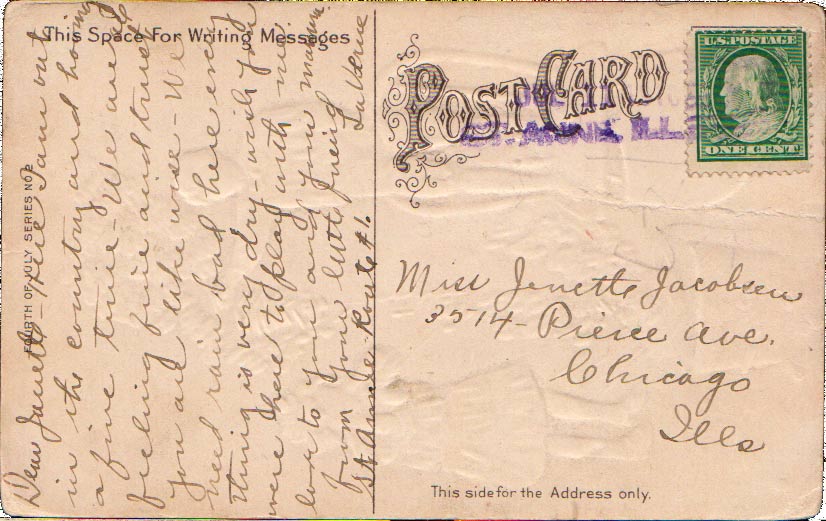 This Space For Writing Messages
Dear Janette - We are out
in the country and having
a fine time - We are all
feeling fine and trust
you are like wise - We
need rain bad here every
thing is very dry - wish you
were here to play with me
love to you and your mamma.
from your little friend
La Verne
St Anne - Route #1.
FOURTH OF JULY SERIES NO 2
POST CARD
ST. ANNE, ILL.
U.S. POSTAGE
ONE CENT
Miss Jenette Jacobsen
3514 - Pierce Ave.
Chicago
Ills
This side for the Address only.